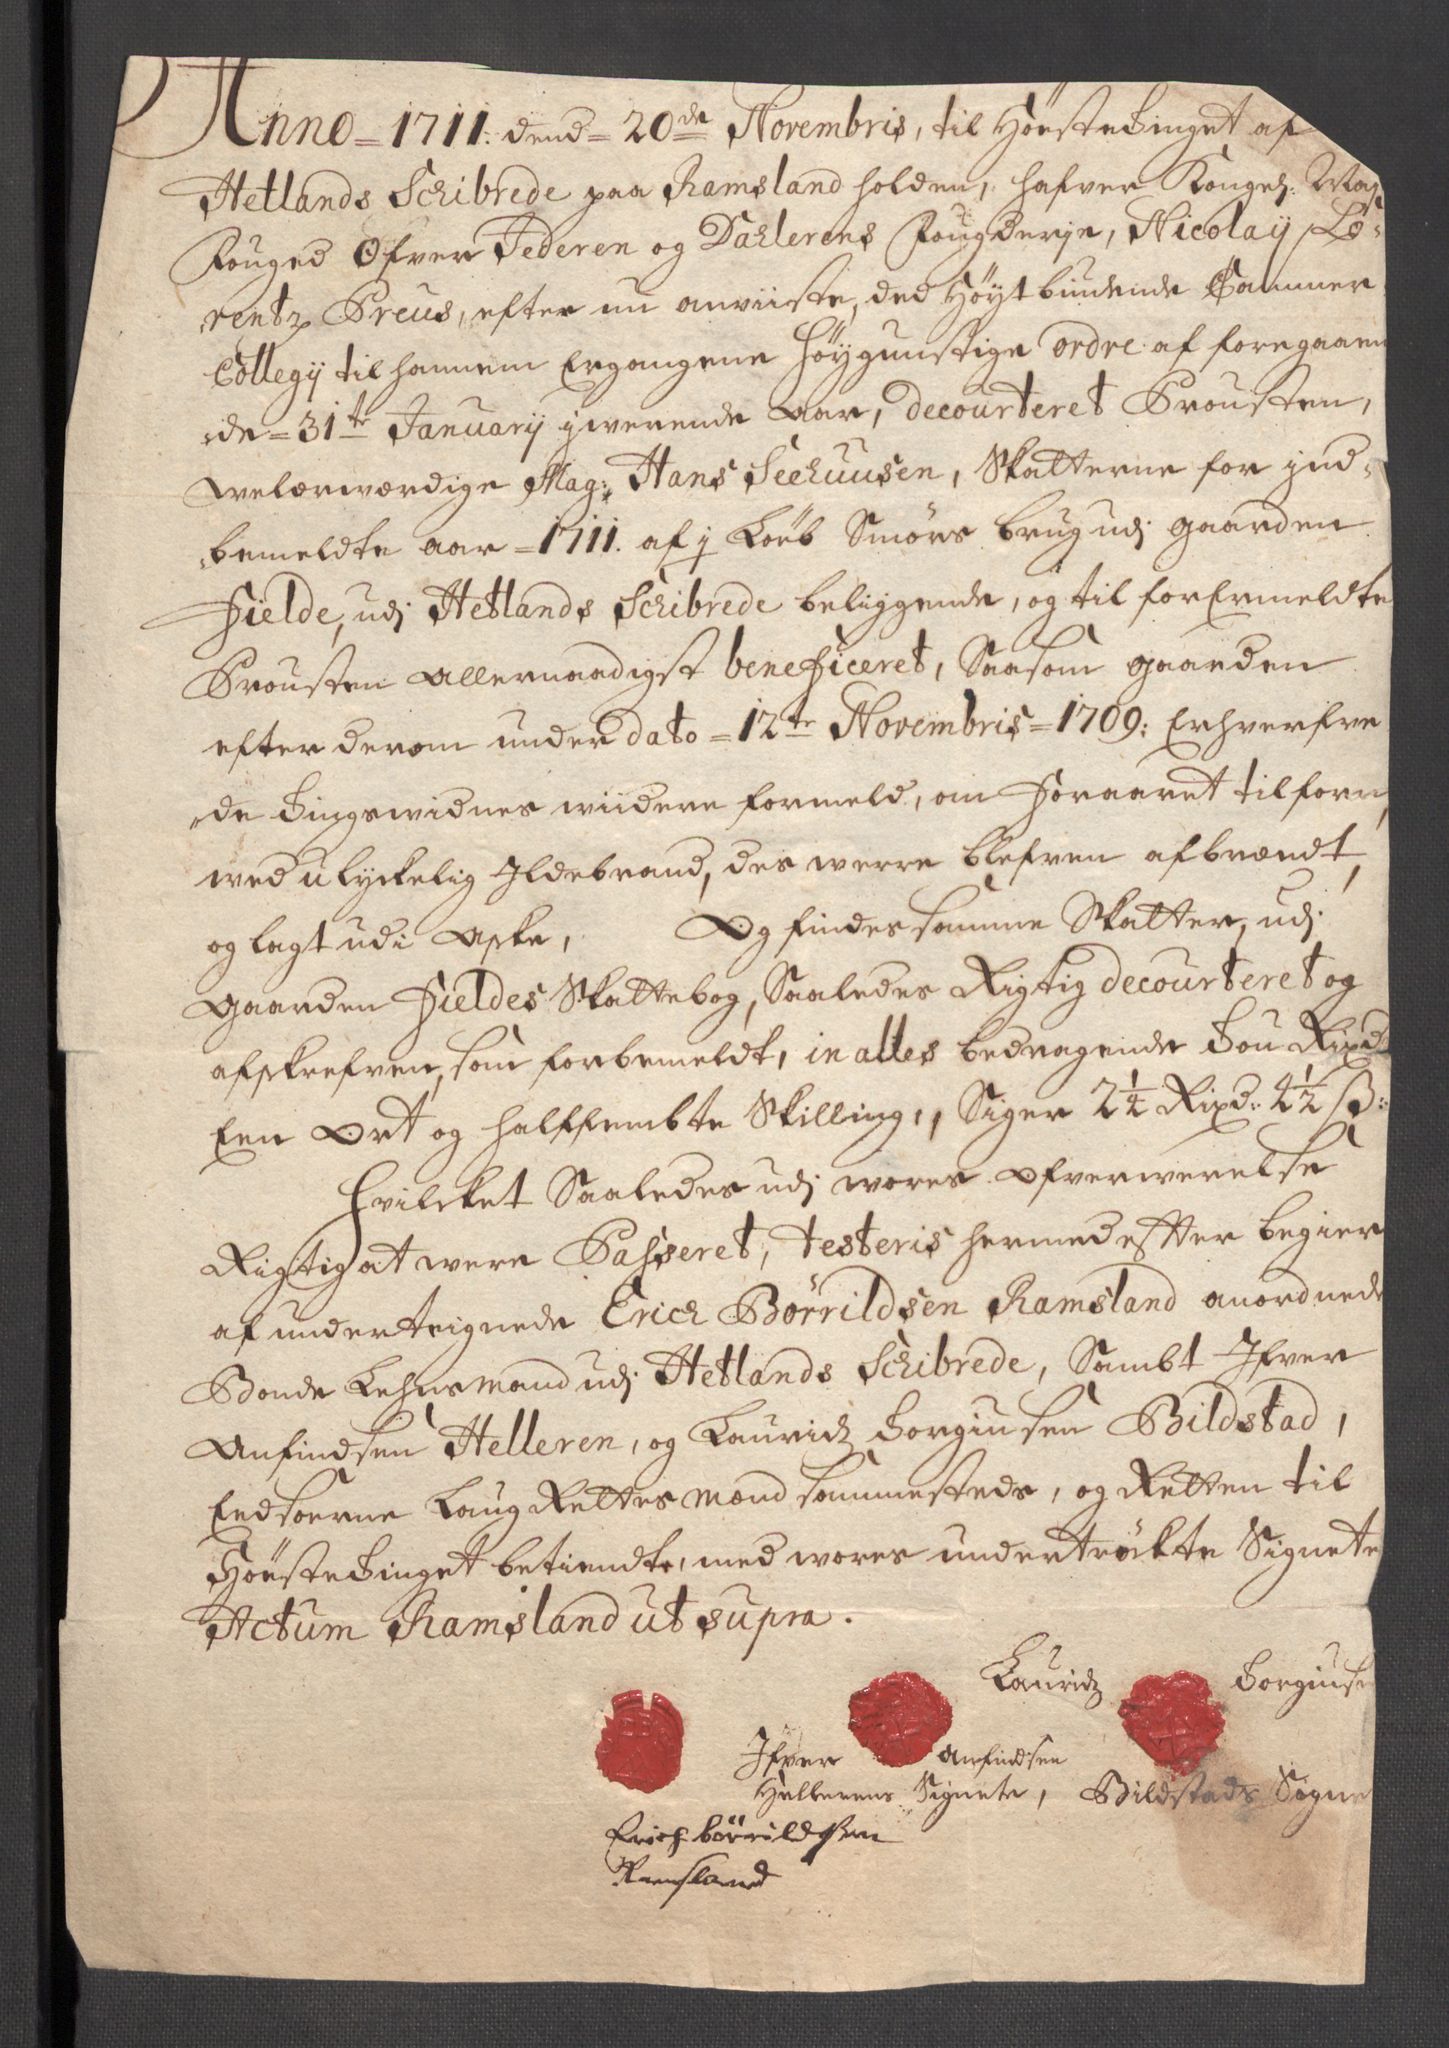 Anno = 1711. dend = 20de Novembris, til Høstetinget af
Hetlands Schibrede paa Ramsland holden, hafver Kongel: May
Fouged Øfver Jederen og Dahlerens Fougderje, Nicolaij Lo=
rentz Preus, efter nu anviiste, ded Høytbiudende Cammer
Collegij til hannem Ergangene høygunstige ordre af foregaaen
de = 31te Januarij jwerende aar, decourteret Prousten,
welærwærdige Mag: Hans Seehuusen, Skatterne for jnd=
bemeldte aar = 1711. af j Løeb Smørs brug udj gaarden
Fielde, udj Hetlands Schibrede beliggende, og til forermeldte
Prousten allernaadigst beneficeret, Saasom gaarden
efter derom under dato = 12te Novembris = 1709: Erhverfve
de tingswidnes wiidere formeld, om foraaret tilforn,
wed ulyckelig Jldebrand, des werre blefven afbrændt,
og lagt udi aske, Og findes samme Skatter, udj
gaarden Fieldes Skattebog, Saaledes Rigtig decourteret og
afskrefven, som forbemeldt, in alles bedragende tou Rixd
Een Ort og halffembte Skilling, Siger 2 1/4 Rixd: 4 1/2 ß:
Hvilcket Saaledes udj wores ofverwerelse
Rigtig at were Passeret, testeris hermed efter begier
af underteignede Erich Børrildsen Ramsland anordnede
Bonde Lehnsmand udj Hetlands Schibrede, Sambt Jfver
Anfindsen Helleren, og Lauridz Torgiusen Bildstad,
Eedsoerne Laug Rettes Mænd sammesteds, og Retten til
Høstetinget betiendte, med wores undertrökte Signete
Actum Ramsland ut supra.
Lauridz Torgiuse
Jfver Anfindsen
Hellerens Signete, Bildstads Signe
Erich børrildsen
Ramsland